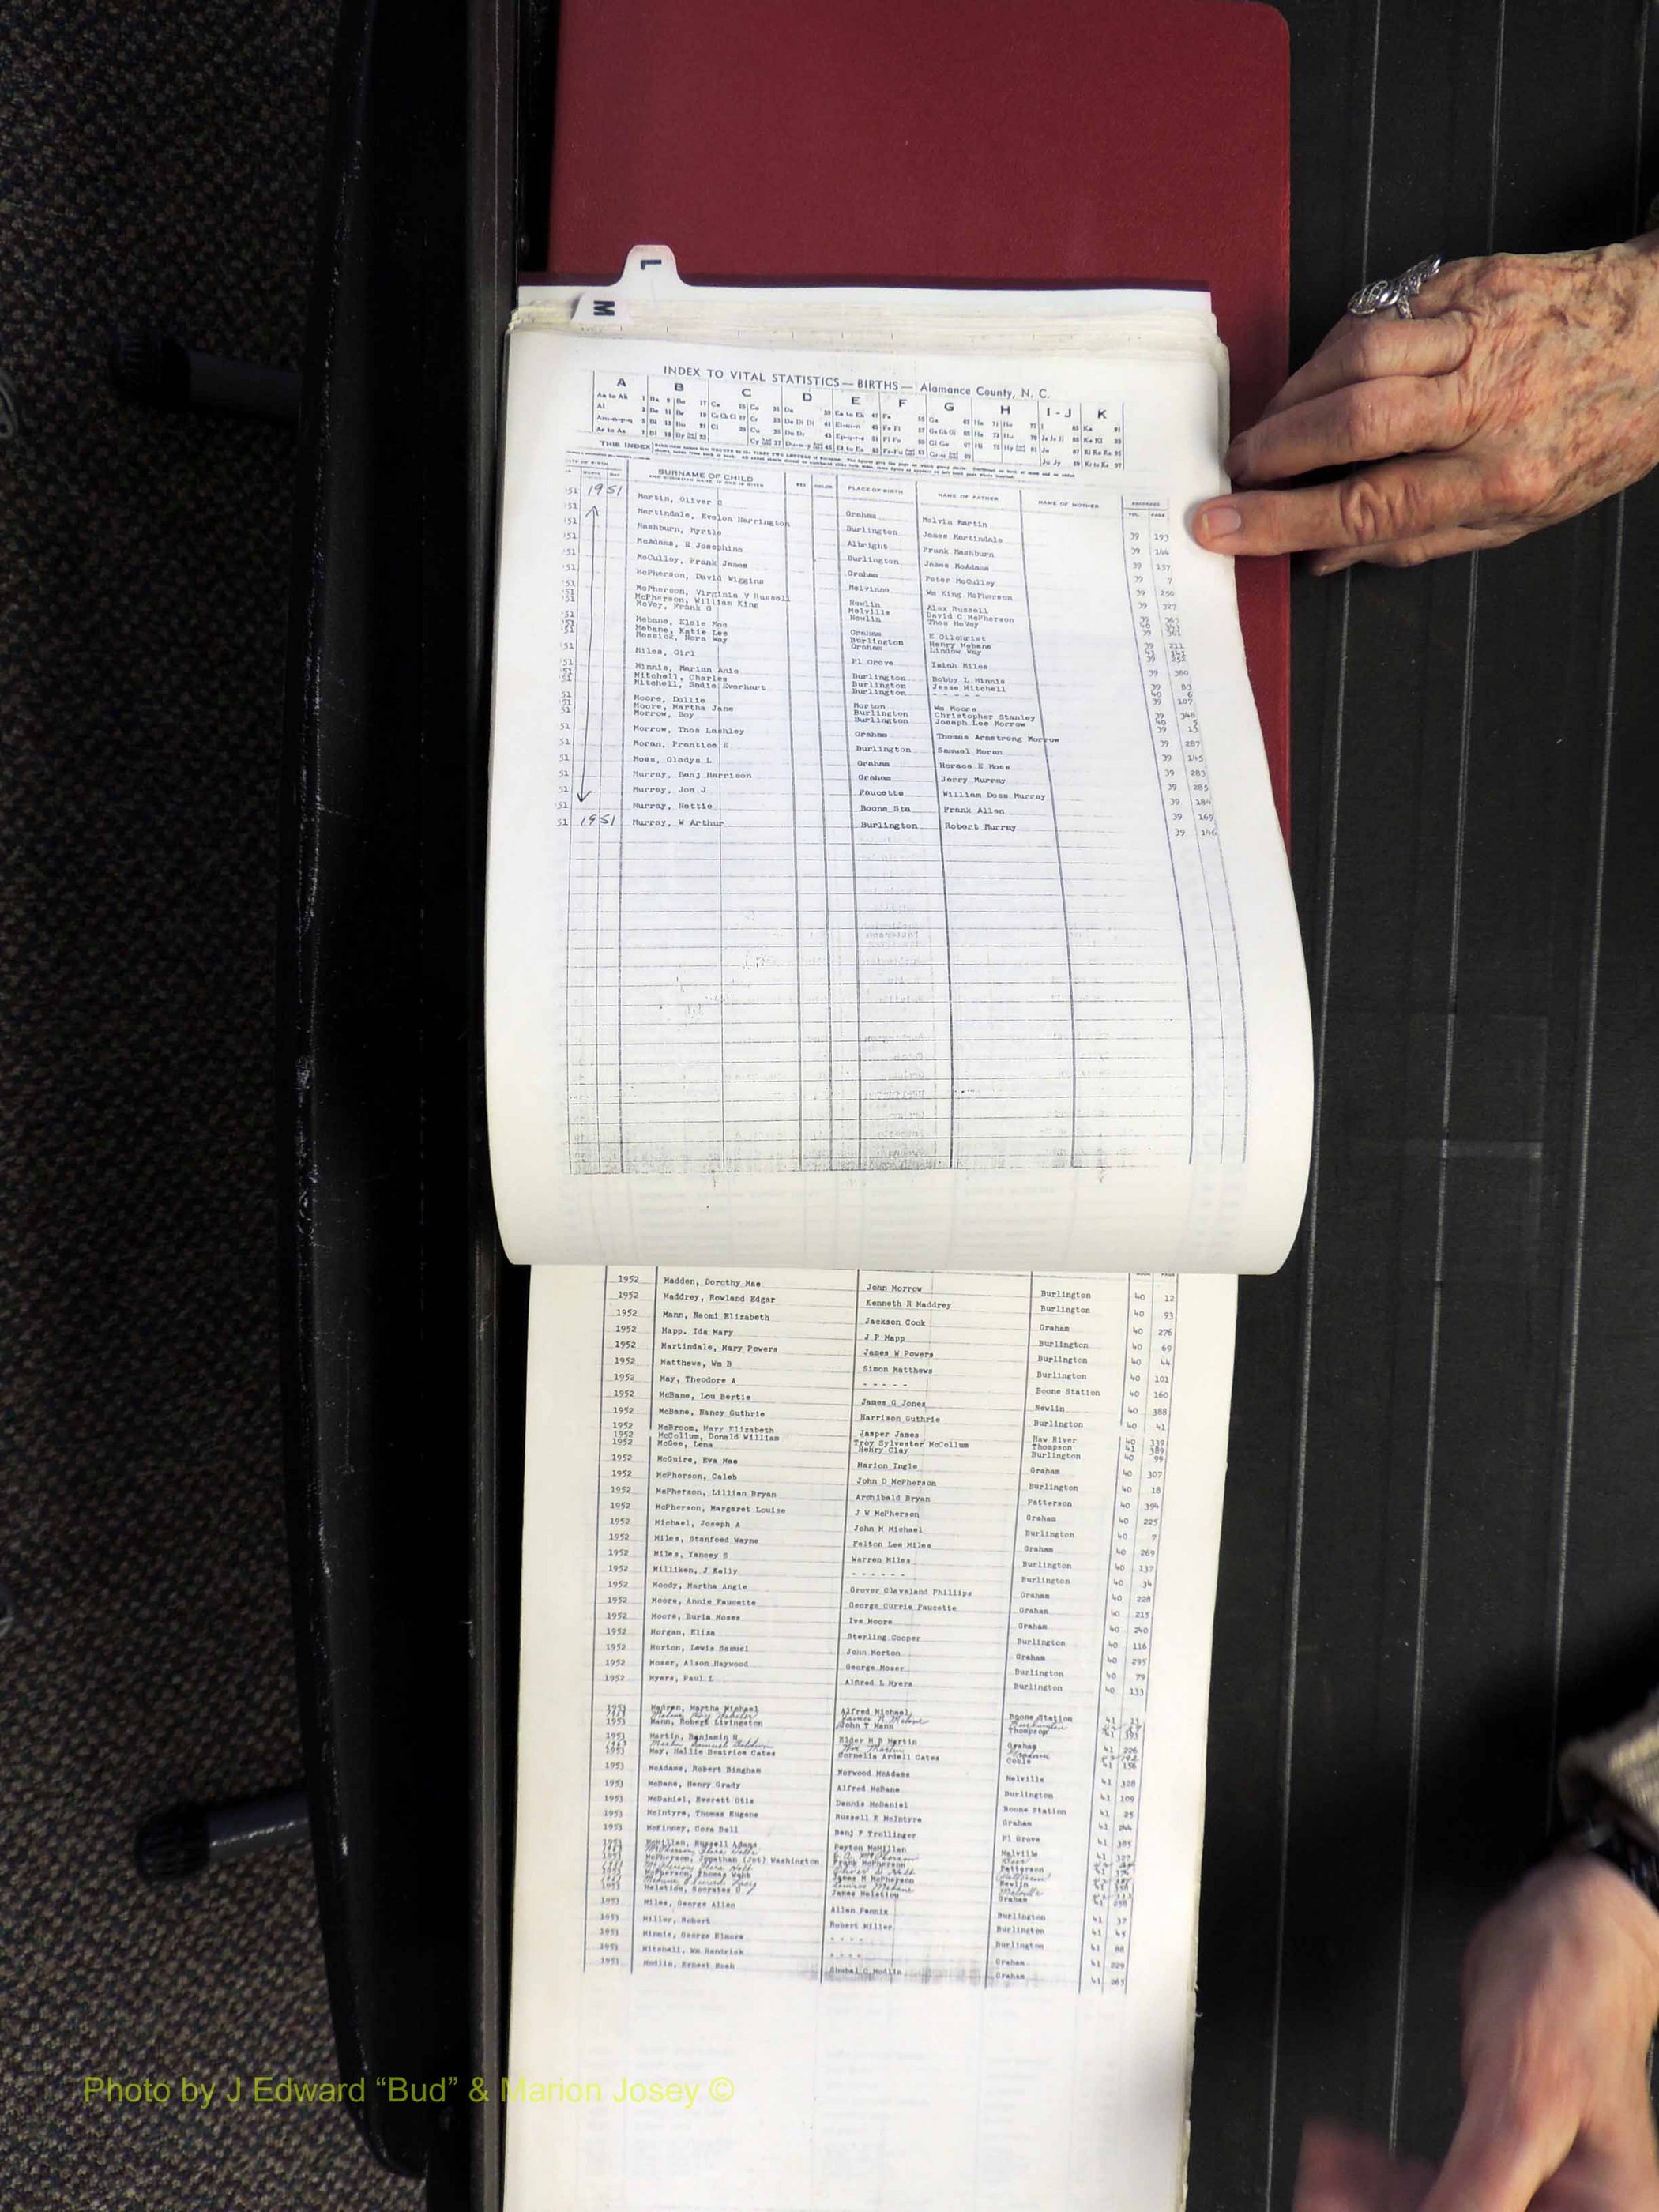 L
M
INDEX TO VITAL STATISTICS — BIRTHS — Alamance County, N. C.
A B C D E F G H I-J K
THIS INDEX
SURNAME OF CHILD PLACE OF BIRTH NAME OF FATHER NAME OF MOTHER
51 1951 Martin, Oliver C Graham Melvin Martin 39 193
51 Martindale, Evelon Harrington Burlington James Martindale 39 144
51 Mashburn, Myrtle Albright Frank Mashburn 39 157
51 McAdams, E Josephine Burlington James McAdams 39 7
51 McCulley, Frank James Graham Peter McCulley 39 250
51 McPherson, David Wiggins Melvinne Wm King McPherson 39 327
51 McPherson, Virginia V Russell Newlin Alex Russell 39
51 McPherson, William King Melville David C McPherson
51 McVey, Frank O Newlin Thos McVey 39
51 Mebane, Elsie Mae Graham E Gilchrist 39 211
51 Mebane, Katie Lee Burlington Henry Mebane
51 Messick, Nora Way Graham Lindow Way 39
51 Miles, Girl Pl Grove Isiah Miles 39 380
51 Minnis, Marian Anie Burlington Bobby L Minnis 39 83
51 Mitchell, Charles Burlington Jesse Mitchell 40 6
51 Mitchell, Sadie Everhart Burlington - - - - - 39 107
51 Moore, Dollie Morton Wm Moore 39 348
51 Moore, Martha Jane Burlington Christopher Stanley 40 5
51 Morrow, Boy Burlington Joseph Lee Morrow 39 13
51 Morrow, Thos Lashley Graham Thomas Armstrong Morrow 39 287
51 Moran, Prentice E Burlington Samuel Moran 39 145
51 Moss, Gladys L Graham Horace E Moss 39 283
51 Murray, Benj Harrison Graham Jerry Murray 39 285
51 Murray, Joe J Faucette William Doss Murray 39 184
51 Murray, Nettie Boone Sta Frank Allen 39 169
51 1951 Murray, W Arthur Burlington Robert Murray 39 146
1952 Madden, Dorothy Mae John Morrow Burlington 40 12
1952 Maddrey, Rowland Edgar Kenneth R Maddrey Burlington 40 93
1952 Mann, Naomi Elizabeth Jackson Cook Graham 40 276
1952 Mapp. Ida Mary J P Mapp Burlington 40 69
1952 Martindale, Mary Powers James W Powers Burlington 40 44
1952 Matthews, Wm B Simon Matthews Burlington 40 101
1952 May, Theodore A - - - - - Boone Station 40 160
1952 McBane, Lou Bertie James G Jones Newlin 40 388
1952 McBane, Nancy Guthrie Harrison Guthrie Burlington 40 41
1952 McBroom, Mary Elizabeth Jasper James Haw River 40 339
1952 McCollum, Donald William Troy Sylvester McCollum Thompson 41 389
1952 McGee, Lena Henry Clay Burlington 40 99
1952 McGuire, Eva Mae Marion Ingle Graham 40 307
1952 McPherson, Caleb John D McPherson Burlington 40 18
1952 McPherson, Lillian Bryan Archibald Bryan Patterson 40 394
1952 McPherson, Margaret Louise J W McPherson Graham 40 225
1952 Michael, Joseph A John M Michael Burlington 40 7
1952 Miles, Stanfoed Wayne Felton Lee Miles Graham 40 269
1952 Miles, Yancey S Warren Miles Burlington 40 137
1952 Milliken, J Kelly - - - - - - Burlington 40 34
1952 Moody, Martha Angie Grover Cleveland Phillips Graham 40 228
1952 Moore, Annie Faucette George Currie Faucette Graham 40 215
1952 Moore, Buria Moses Ive Moore Graham 40 240
1952 Morgan, Eliza Sterling Cooper Burlington 40 116
1952 Morton, Lewis Samuel John Morton Graham 40 295
1952 Moser, Alson Haywood George Moser Burlington 40 79
1952 Myers, Paul L Alfred L Myers Burlington 40 133
1953 Madren, Martha Michael Alfred Michael Boone Station 41 11
1953 Mann, Robert Livingston John T Mann Thompson 41 393
1953 Martin, Benjamin H Elder H B Martin Graham 41 226
1953 May, Hallie Beatrice Cates Cornelia Ardell Cates Coble 41 156
1953 McAdams, Robert Bingham Norwood McAdams Melville 41 328
1953 McBane, Henry Grady Alfred McBane Burlington 41 109
1953 McDaniel, Everett Otis Dennis McDaniel Boone Station 41 25
1953 McIntyre, Thomas Eugene Russell E McIntyre Graham 41 244
1953 McKinney, Cora Bell Benj F Trollinger Pl Grove 41 385
1953 McMillan, Russell Adams Payton McMillan Melville 41 327
1953 McPherson, Jonathan (Jot) Washington Frank McPherson Patterson 41
1953 McPherson, Thomas Webb James M McPherson Newlin
1953 Melation, Socrates G James Melation Graham 41 258
1953 Miles, George Allen Allen Fennix Burlington 41 37
1953 Miller, Robert Robert Miller Burlington 41 45
1953 Minnis, George Elmore - - - - Burlington 41 88
1953 Mitchell, Wm Hendrick - - - - Graham 41 229
1953 Modlin, Ernest Noah Shubal C Modlin Graham 41 263
Photo by J Edward “Bud” & Marion Josey ©